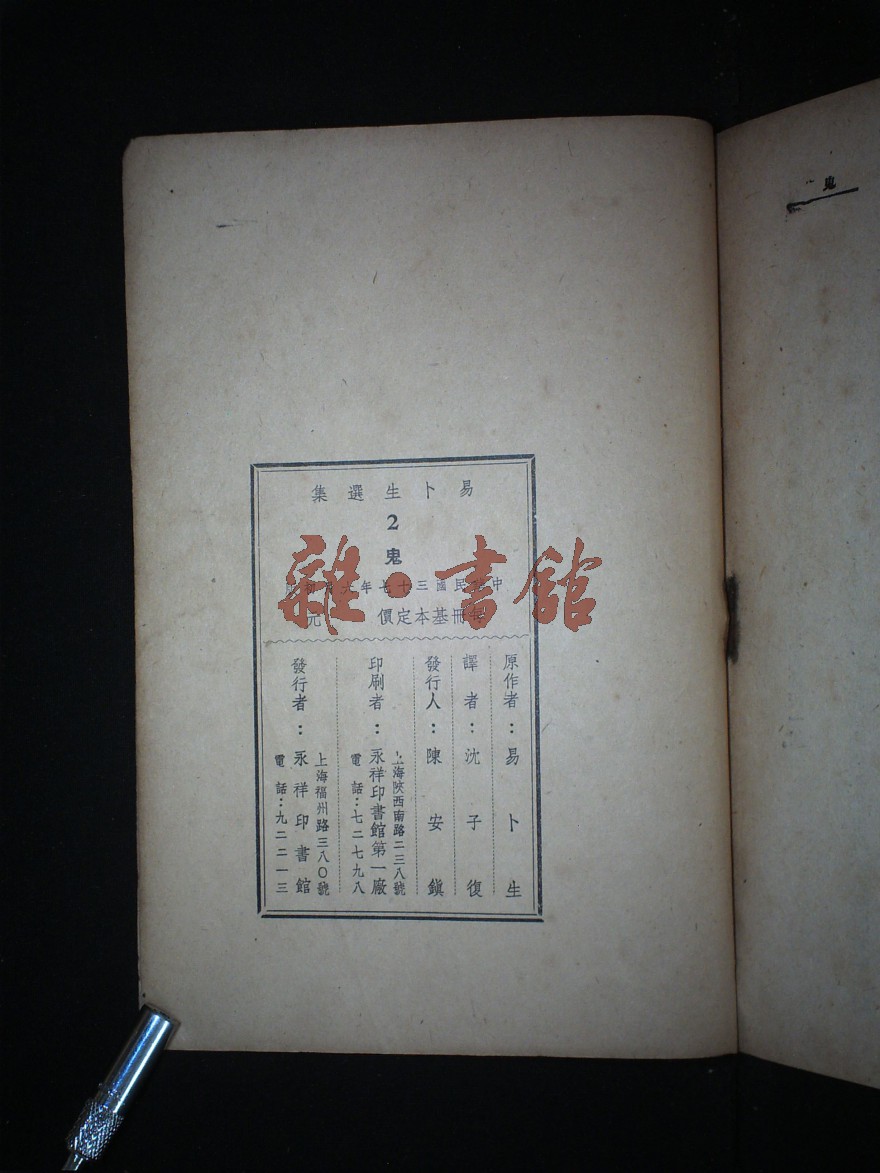 易卜生選集
2
鬼
中華民國三十七年 月初版
每冊基本定價 元
原作者：易卜生
譯者：沈子復
發行人：陳安鎮
印刷者：永祥印書館第一廠
上海陝西南路二三八號
電話：七二七九八
發行者：永祥印書館
上海福州路三八〇號
電話：九二二一三
雜·書館
鬼